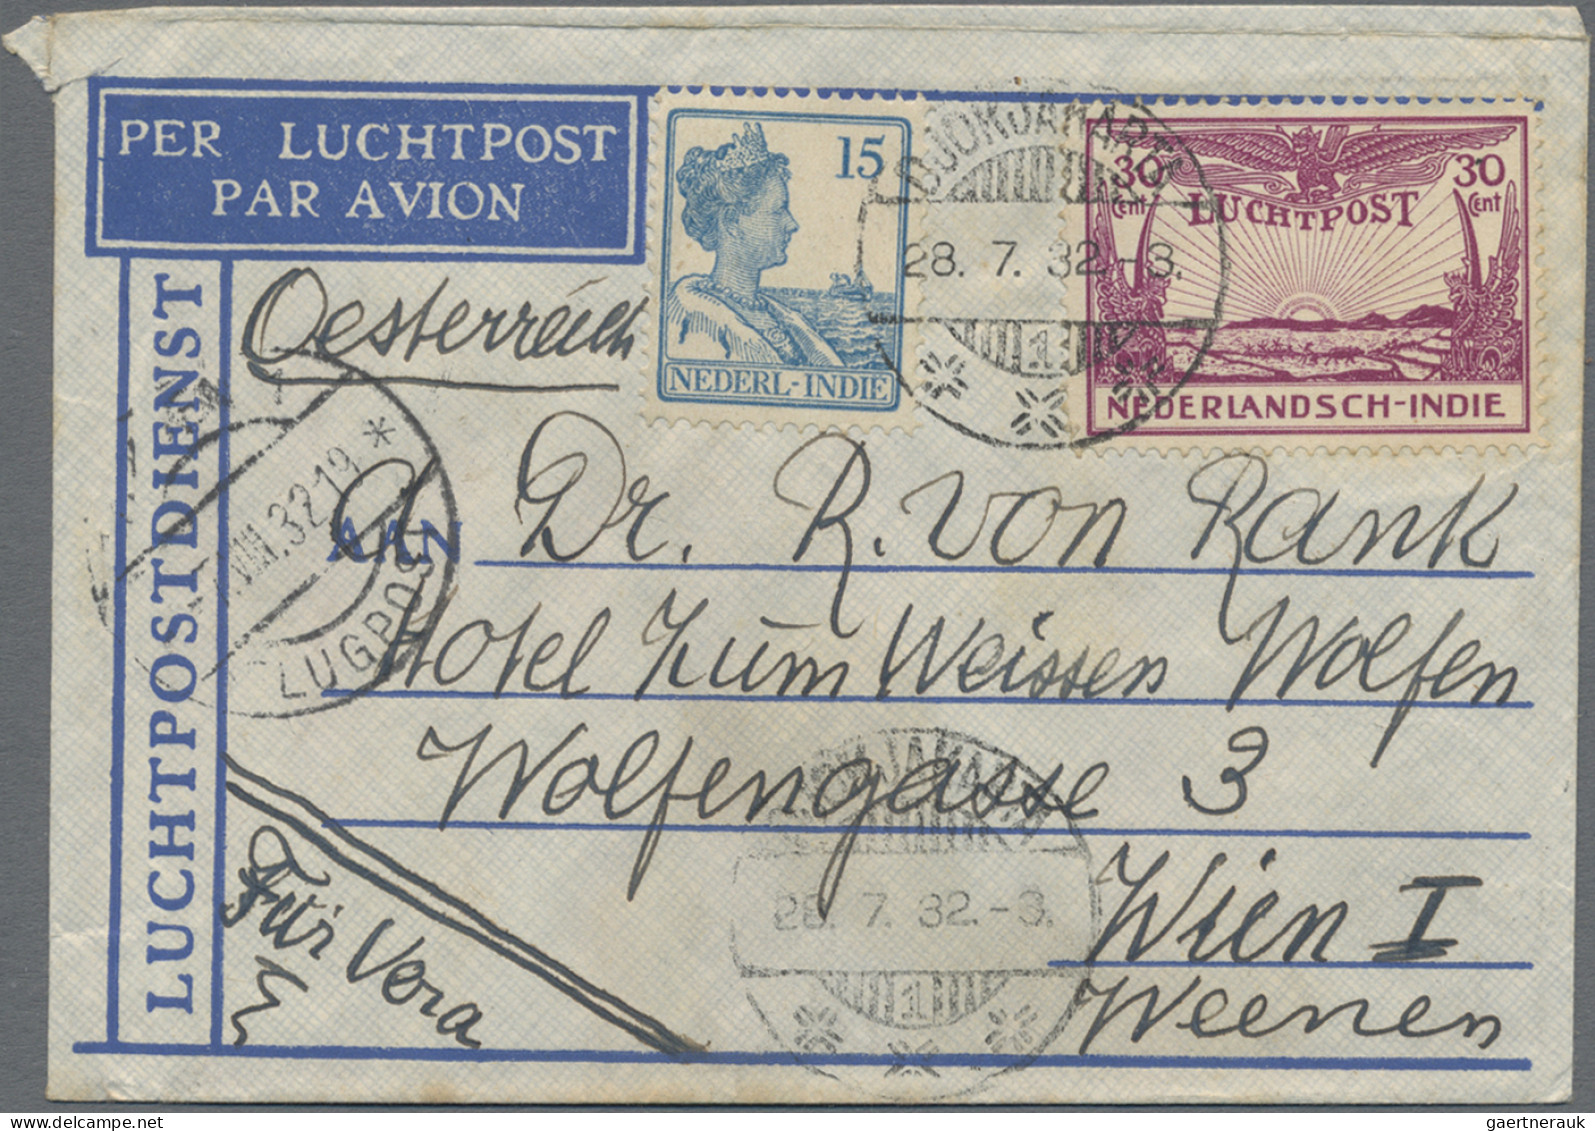 PER LUCHTPOST
PAR AVION
LUCHTPOSTDIENST
Oesterreich
15
NEDERL-INDIE
DJOKJAKARTA
28. 7. 32.-3.
1
30 Cent
30 Cent
LUCHTPOST
NEDERLANDSCH-INDIE
VIII.32 19 *
FLUGPOST
AAN
Dr. R. von Rank
Hotel zum Weissen Wolfen
Wolfengasse 3
Wien I
Weenen
Für Vera
DJOKJAKARTA
28. 7. 32.-3.
1
gaertnerauk